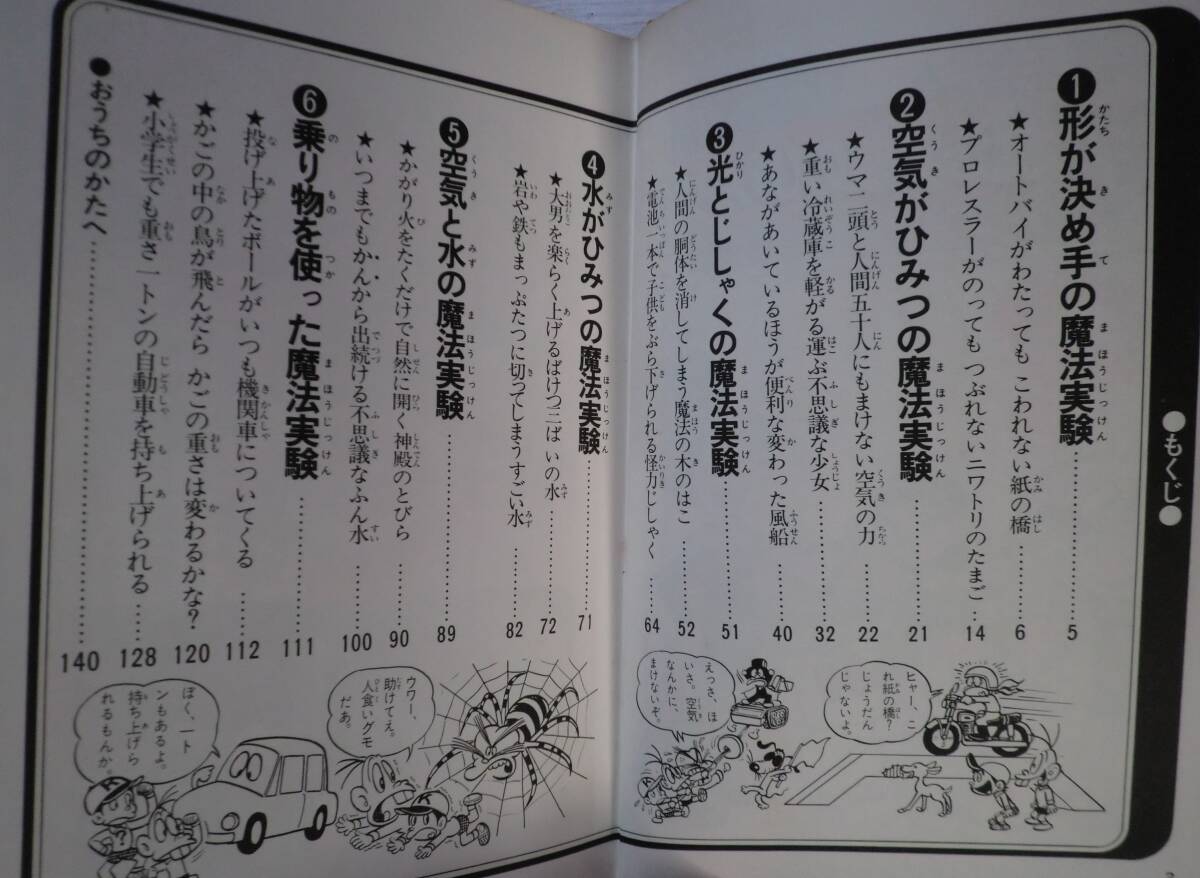 ●もくじ●
❶形が決め手の魔法実験……5
★オートバイがわたっても こわれない紙の橋……6
★プロレスラーがのっても つぶれないニワトリのたまご……14
❷空気がひみつの魔法実験……21
★ウマ二頭と人間五十人にもまけない空気の力……22
★重い冷蔵庫を軽がる運ぶ不思議な少女……32
★あながあいているほうが便利な変わった風船……40
❸光とじしゃくの魔法実験……51
★人間の胴体を消してしまう魔法の木のはこ……52
★電池一本で子供をぶら下げられる怪力じしゃく……64
❹水がひみつの魔法実験……71
★大男を楽らく上げるばけつ二はいの水……72
★岩や鉄もまっぷたつに切ってしまうすごい水……82
❺空気と水の魔法実験……89
★かがり火をたくだけで自然に開く神殿のとびら……90
★いつまでもかんから出続ける不思議なふん水……100
❻乗り物を使った魔法実験……111
★投げ上げたボールがいつも機関車についてくる……112
★かごの中の鳥が飛んだら かごの重さは変わるかな?……120
★小学生でも重さ一トンの自動車を持ち上げられる……128
●おうちのかたへ……140
ヒャー、こ
れ紙の橋?
じょうだん
じゃないよ。
えっさ、ほ
いさ。空気
なんかに、
まけないぞ。
ウワー、
助けてえ。
人食いグモ
だあ。
ぼく、一ト
ンもあるよ。
持ち上げら
れるもんか。